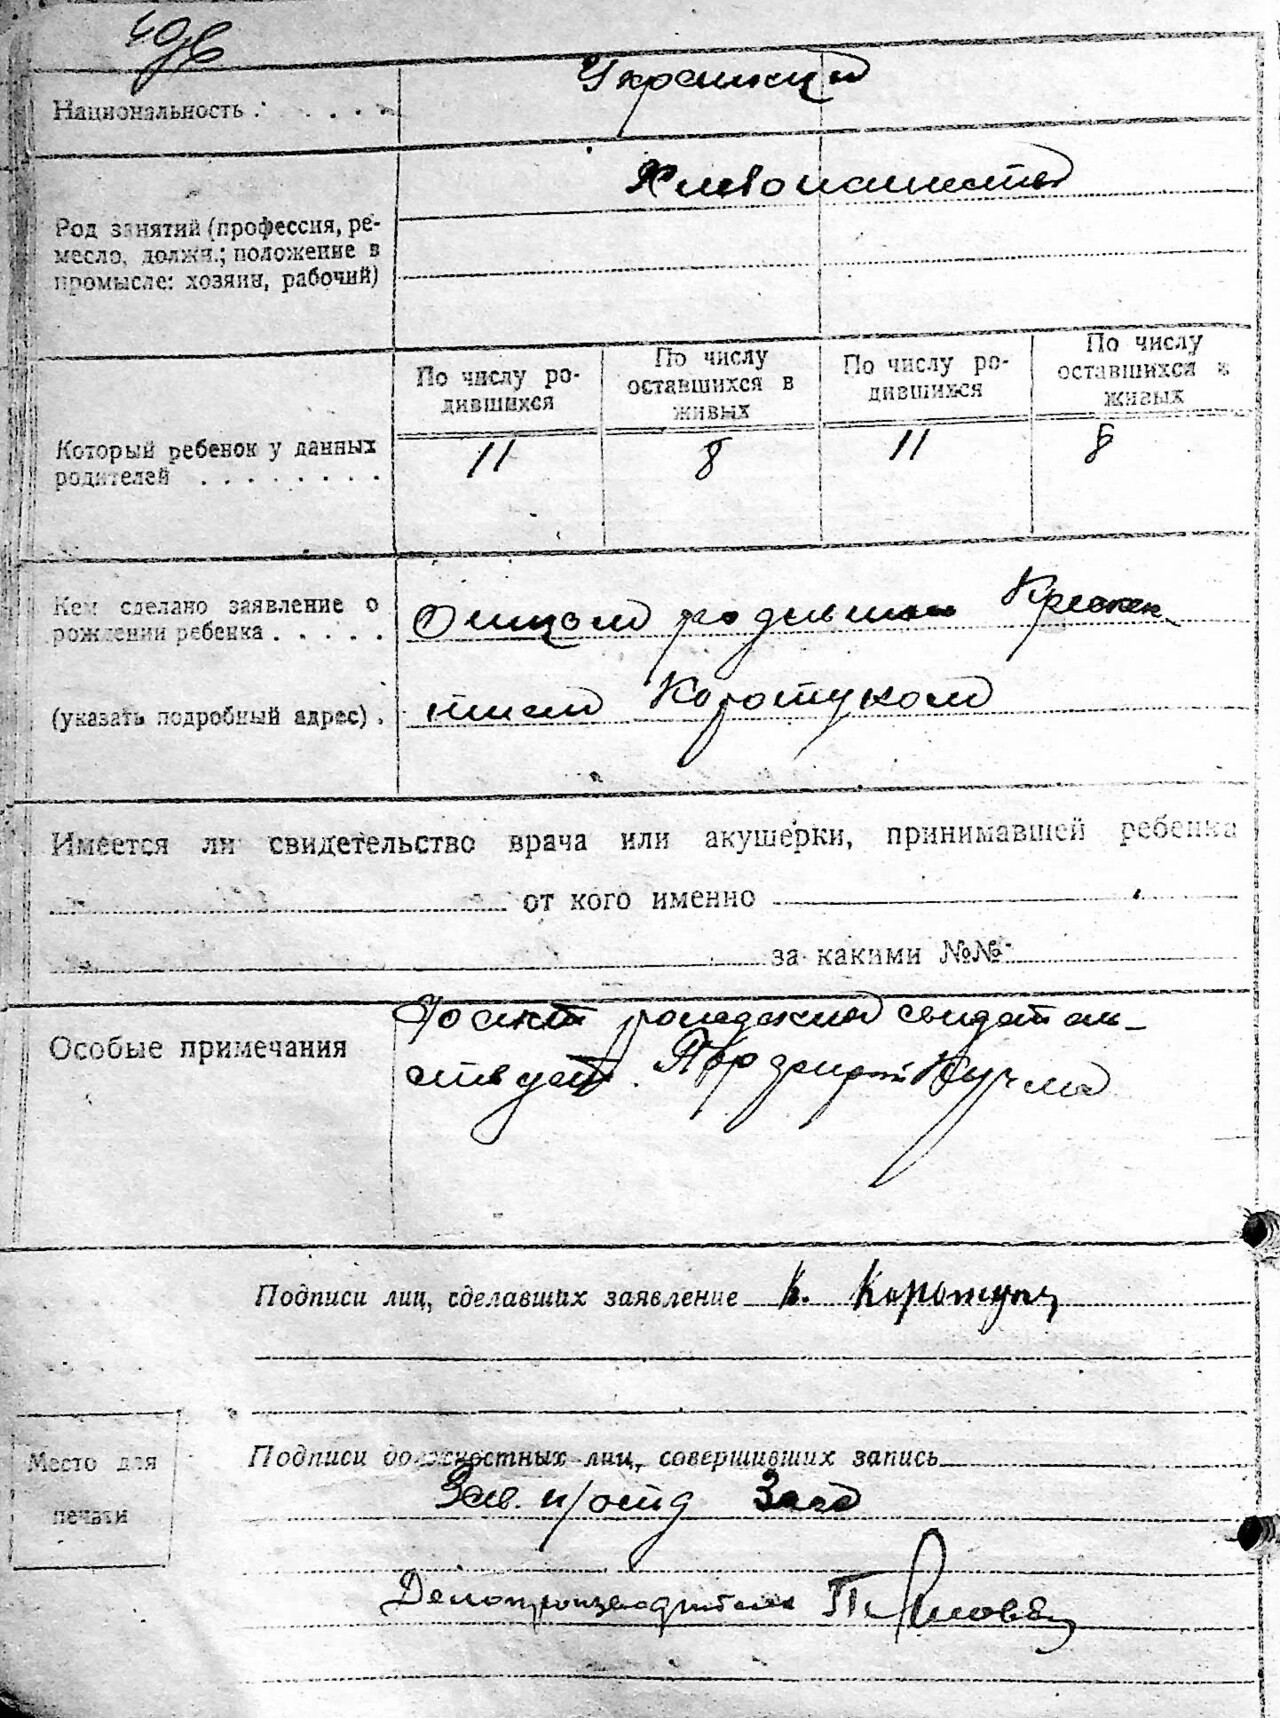 Национальность :
Украинцы
Род занятий (профессия, ре-
месло, должн.; положение в
промысле: хозяин, рабочий)
Хлебопашество
По числу ро-
дившихся
По числу
оставшихся в
живых
По числу ро-
дившихся
По числу
оставшихся в
живых
Который ребенок у данных
родителей . . . . . . . .
11 8 11 8
Кем сделано заявление о
рождении ребенка . . . . .
Отцом родившим
(указать подробный адрес) .
Коротуком
Имеется ли свидетельство врача или акушерки, принимавшей ребенка
от кого именно
за какими №№
Особые примечания
Факт рождения свидетель-
ствует. Кучма
Подписи лиц, сделавших заявление К. Коротун
Место для
печати
Подписи должностных лиц, совершивших запись
Зав. п/отд Загс
Делопроизводитель